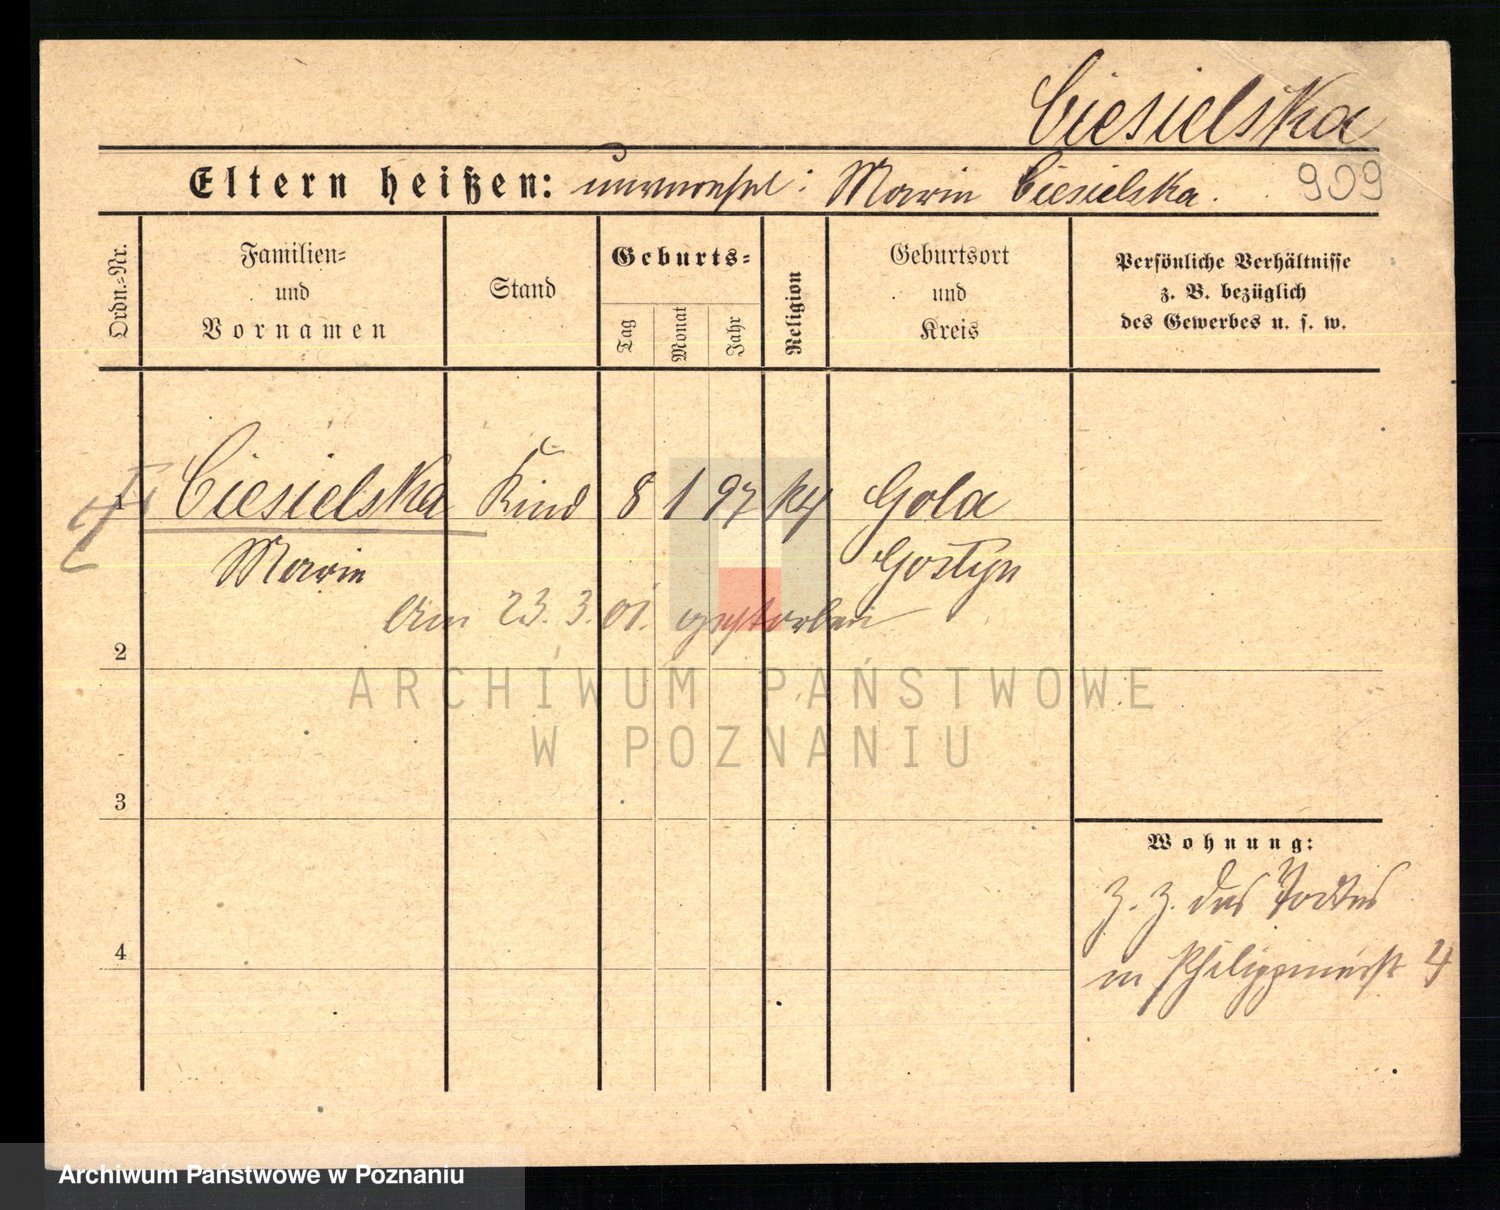 Ciesielska
Eltern heißen: unverehel: Marie Ciesielska.
909
Ordn.-Nr.
Familien-
und
Vornamen
Stand
Geburts-
Tag
Monat
Jahr
Religion
Geburtsort
und
Kreis
Persönliche Verhältnisse
z. B. bezüglich
des Gewerbes u. s. w.
1 Ciesielska Kind 8 1 97 kth Gola
Marie Gostyn
Am 23. 3. 01. gestorben
2
ARCHIWUM PAŃSTWOWE
W POZNANIU
3
Wohnung:
z. z. des Todes
in Philippinerstr 4
4
Archiwum Państwowe w Poznaniu